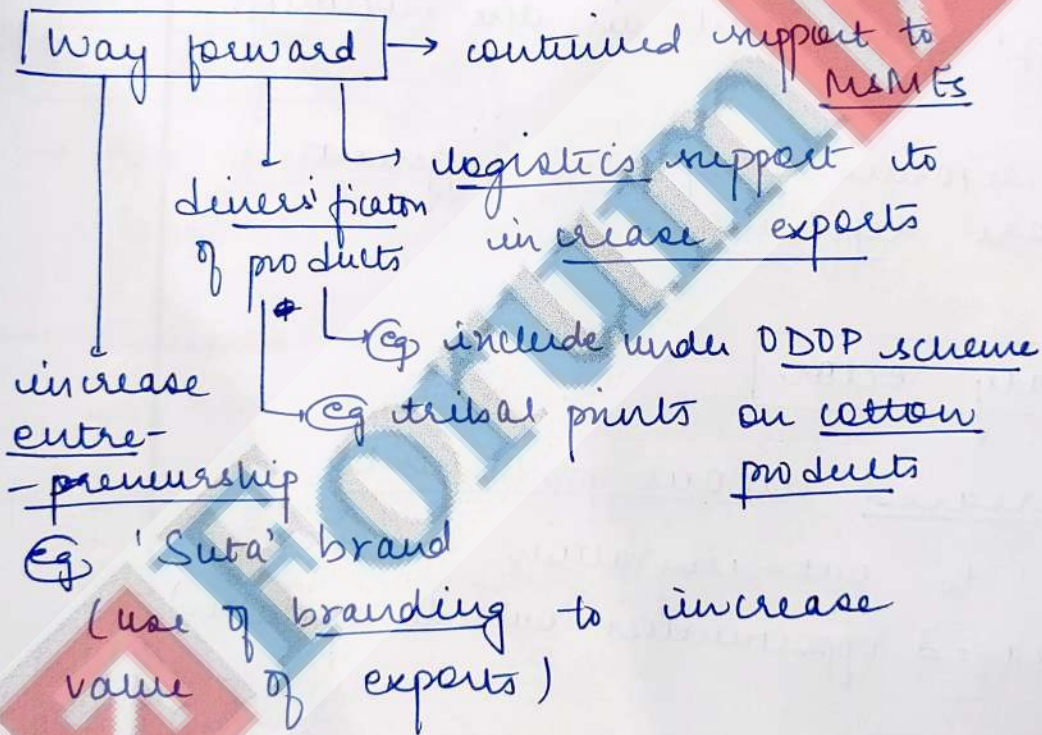 Way forward → continued support to
MSMEs
→ logistics support to
increase exports
diversification
of products
eg include under ODOP scheme
eg tribal prints on cotton
products
increase
entre-
-preneurship
eg 'Suta' brand
(use of branding to increase
value of exports)
Forum